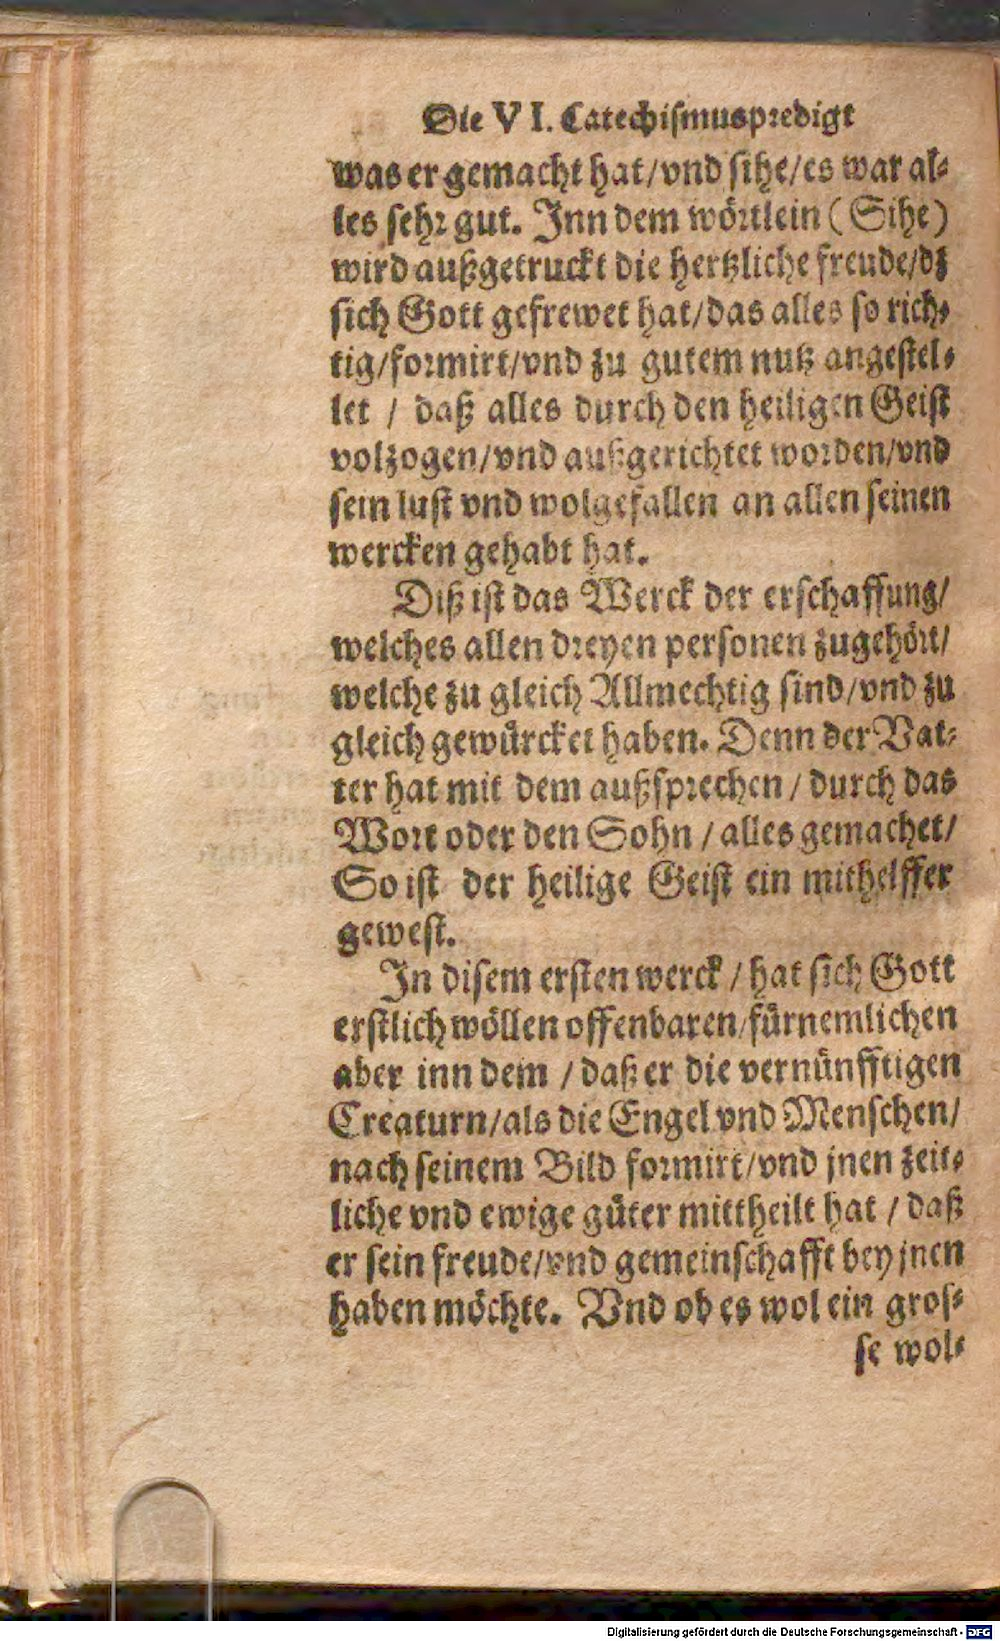 Die VI. Catechiſmuspredigt
was er gemacht hat/vnd ſihe/es war al-
les ſehr gut. Inn dem wörtlein (Sihe)
wird außgetruckt die hertzliche freude/dz
ſich Gott gefrewet hat/das alles ſo rich-
tig/formirt/vnd zu gutem nutz angeſtel-
let / daß alles durch den heiligen Geiſt
volzogen/vnd außgerichtet worden/vnd
ſein luſt vnd wolgefallen an allen ſeinen
wercken gehabt hat.
Diß iſt das Werck der erſchaffung/
welches allen dreyen perſonen zugehört/
welche zu gleich Allmechtig ſind/vnd zu
gleich gewürcket haben. Denn der Vat-
ter hat mit dem außſprechen / durch das
Wort oder den Sohn / alles gemachet/
So iſt der heilige Geiſt ein mithelffer
geweſt.
In diſem erſten werck / hat ſich Gott
erſtlich wöllen offenbaren/fürnemlichen
aber inn dem / daß er die vernünfftigen
Creaturn/als die Engel vnd Menſchen/
nach ſeinem Bild formirt/vnd jnen zeit-
liche vnd ewige güter mittheilt hat / daß
er ſein freude/vnd gemeinſchafft bey jnen
haben möchte. Vnd ob es wol ein groſ-
ſe wol-
Digitalisierung gefördert durch die Deutsche Forschungsgemeinschaft - DFG